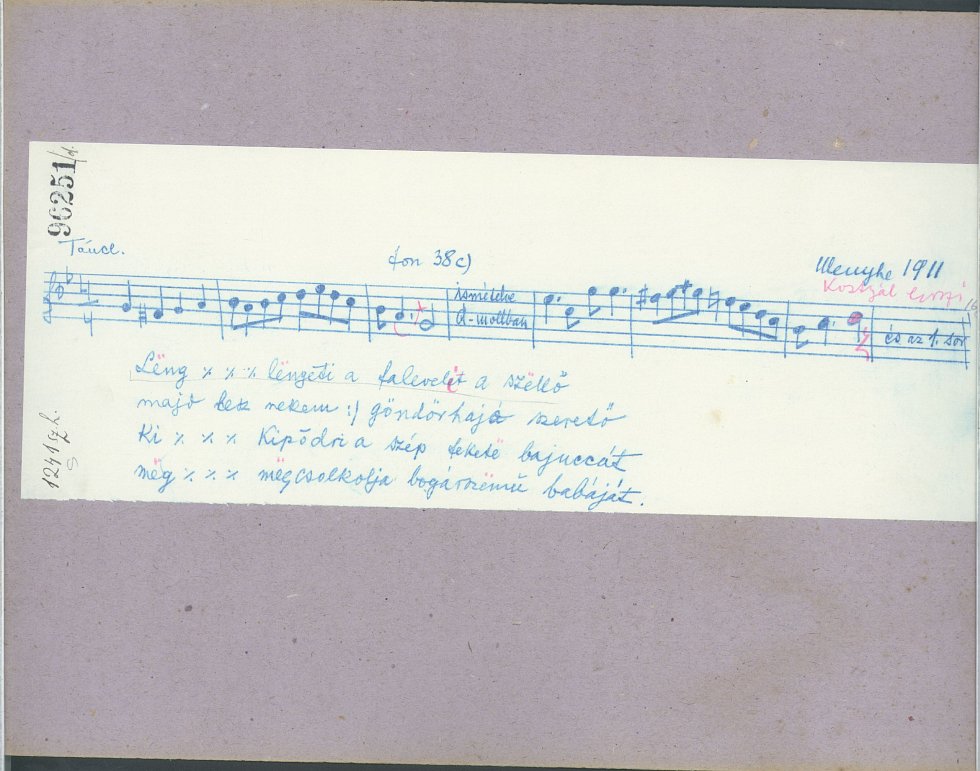 96251/d.
Táncd.
fon 38c)
Menyhe 1911
Kosztyál Erzsi
ismételve
d-mollban
és az 1. sor
Lëng ٪ ٪ ٪ lëngeti a falevelét a szëllő
majd lesz nekem :) göndörhajó szerető
Ki ٪ ٪ ٪ Kipödri a szép fekete bajuccát
mëg ٪ ٪ ٪ mëgcsolkolja bogárszëmű babáját.